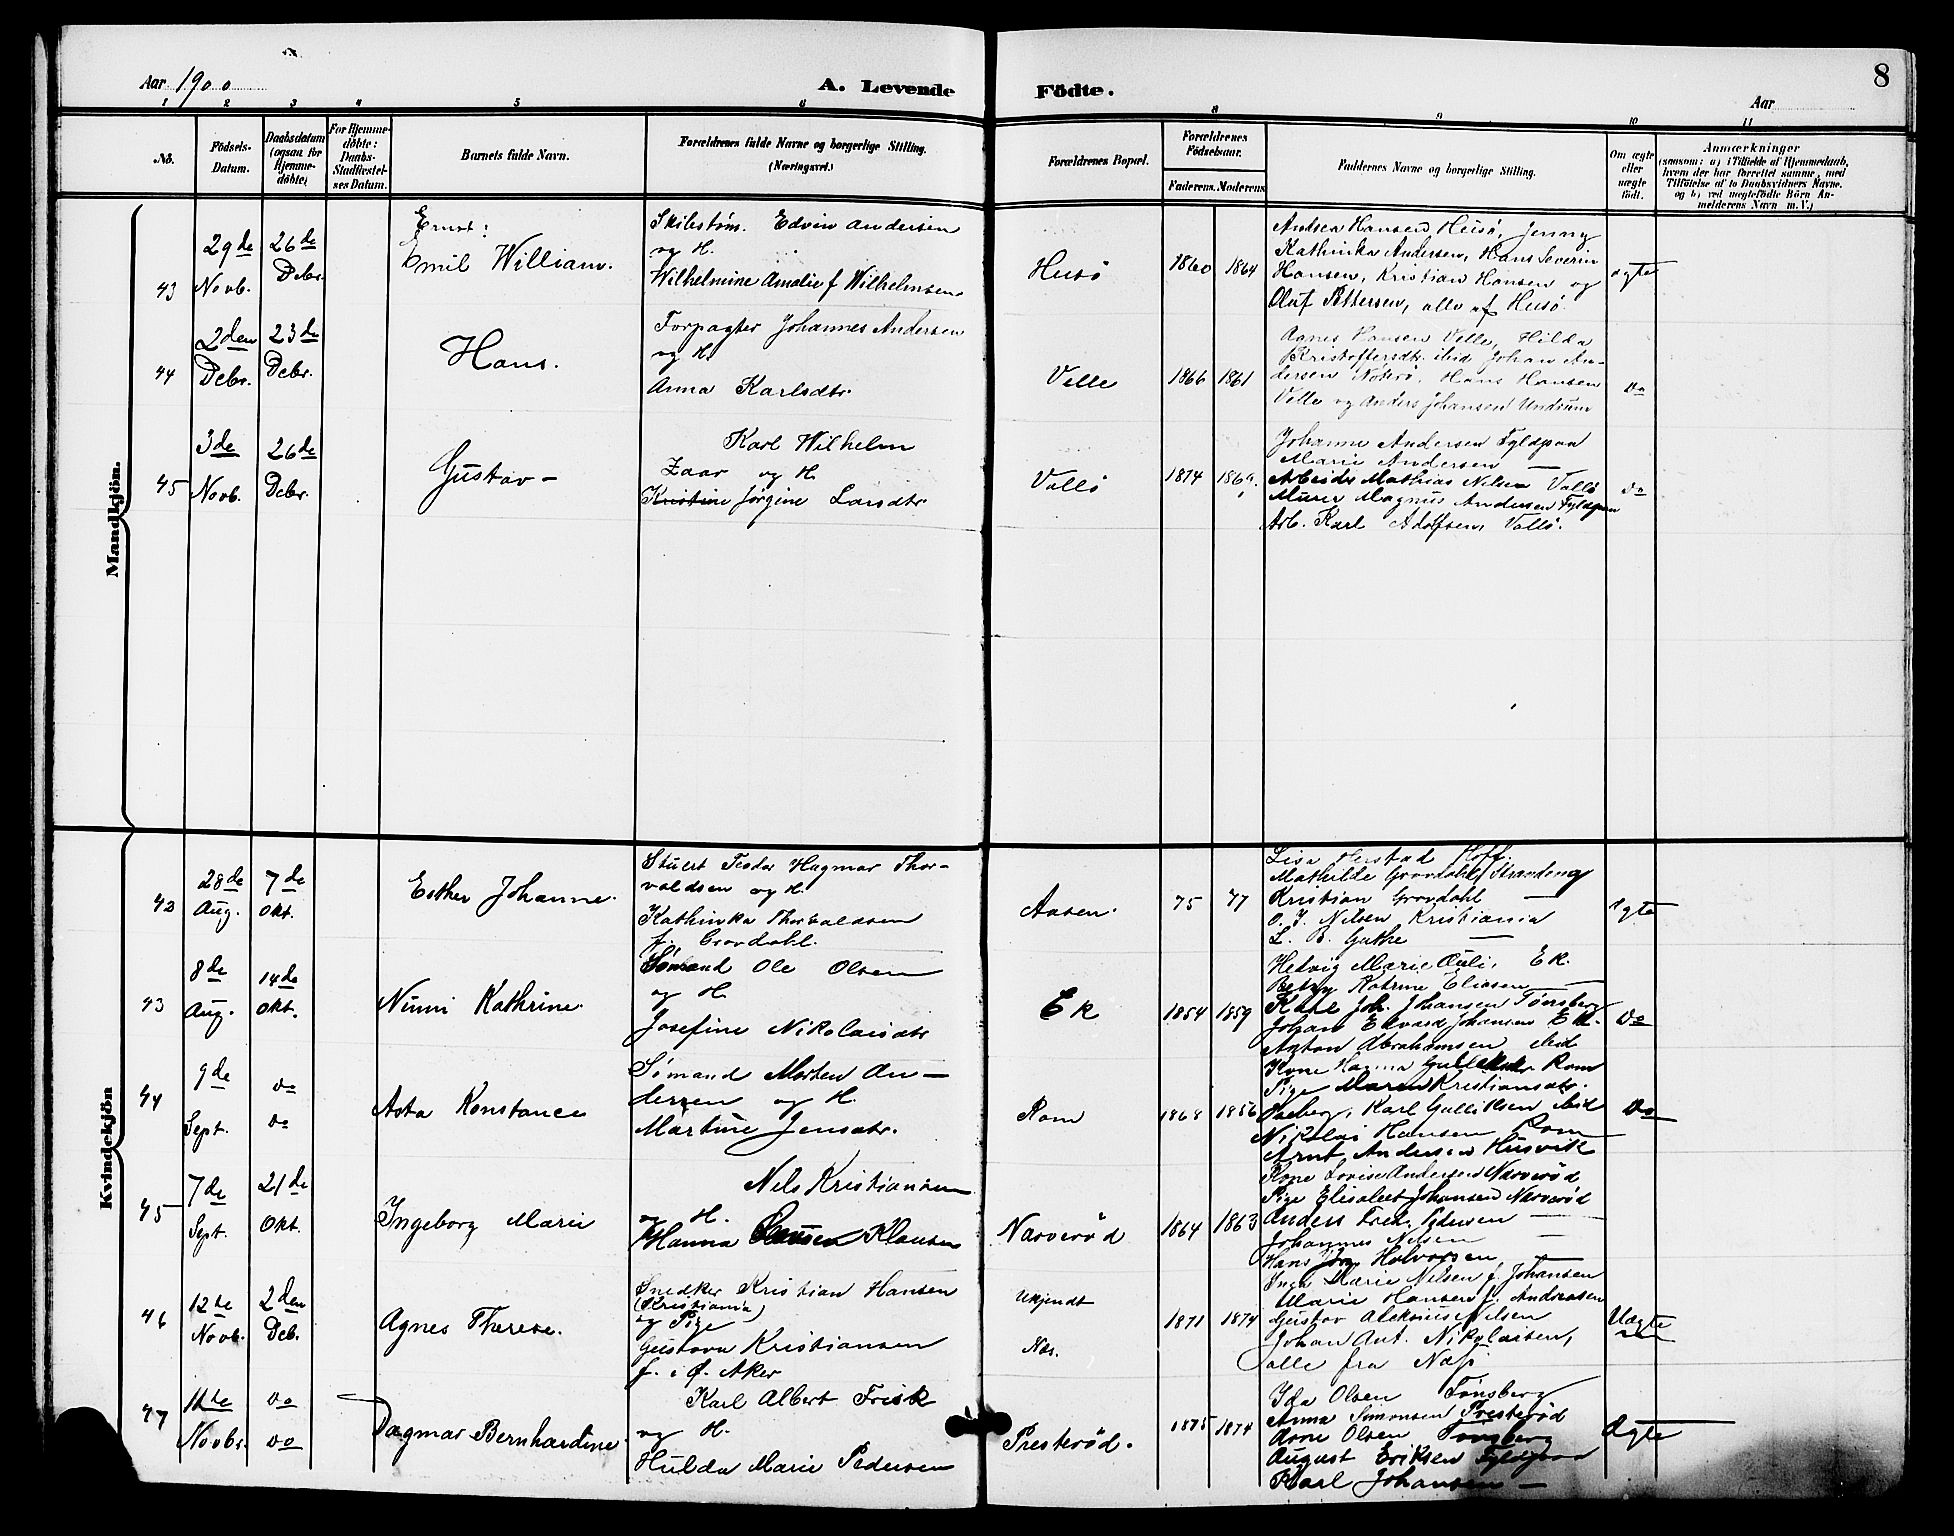 Aar 1900
A. Levende Födte.
Aar
8
1 2 3 4 5 6 8 9 10 11
No.
Födsels-Datum.
Daabsdatum (ogsaa for Hjemme-döbte)
For Hjemme-döbte: Daabs-Stadfæstel-ses Datum.
Barnets fulde Navn.
Forældrenes fulde Navne og borgerlige Stilling.
(Næringsvei.)
Forældrenes Bopæl.
Forældrenes Födselsaar.
Faderens. Moderens
Faddernes Navne og borgerlige Stilling.
Om ægte eller uægte født.
Anmærkninger
(saasom: a) i Tilfælde af Hjemmedaab,
hvem der har forrettet samme, med
Tilföielse af to Daabsvidners Navne.
og b) ved uægtefødte Börn An-
melderens Navn m. V.)
Mandkjön.
43
29de Novb.
26de Debr.
Ernst:
Emil William.
Skibstøm. Edvin Andersen
og H.
Wilhelmine Amalie f Wilhelmsen
Husö
1860 1864
Antsea Hansen Husö, Jenny
Kathinka Andersen, Hans Severin
Hansen, Kristian Hansen og
Oluf Pettersen, alle af Husö.
ægte
44
2den Debr.
23de Debr.
Hans.
Forpagter Johannes Andersen
og H.
Anna Karlsdtr.
Velle
1866 1861
Agnes Hansen Velle, Hilda
Kristoffersdt. ibid Johan An-
dersen Noterö, Hans Hansen
Velle og Anders Johansen Undrum
do
45
3de Novb.
26de Debr.
Gustav -
Karl Wilhelm
Zaar og H.
Kristine Jørgine Larsdtr
Vallö
1874 186
Johanne Andersen Fyldpaa
Marie Andersen —
Arbeider Mathias Nilsen Vallö
Murer Magnus Andersen Fyldpaa
Arb. Karl Adolfsen, Vallö.
do
Kvindekjön
42
28de Aug.
7de Okt.
Esther Johanne
Stuert Peder Hagmar Thor-
valdsen og H.
Kathinka Thorvaldsen
f. Grovdahl.
Aasen.
75 77
Lisa Herstad Hoff.
Mathilde Grovdahl Strandeng
Kristian Grovdahl —
O. J. Nilsen Kristiania
L. B. Guthe —
ægte
43
8de Aug.
14de Okt.
Ninni Kathrine.
Sømand Ole Olsen
og H.
Josefine Nikolaisdtr
Ek
1854 1859
Hedvig Marie Auli, Ek.
Betzy Katrine Eliasen —
Karl Joh. Johansen Tønsberg
Johan Edvard Johansen Ek-
Anton Abrahamsen ibid
do
44
9de Sept.
do do
Asta Konstance
Sømand Morten An-
dersen og H.
Martine Jensdtr.
Rom
1868 1856
Kone Hanna Gulliksen Rom
Pige Maren Kristiansdtr.
Karl Gulliksen ibid
Nikolai Hansen Rom
Arnt Andersen Husvik
do
45
7de Sept.
21de Okt.
Ingeborg Marie
Nils Kristiansen
og H.
Hanna Clausen Klausen
Narverød
1864 1863
Kone Lovise Andersen Narverød
Pige Elisabet Johansen Narverød
Anders Fred. Pedersen —
Johannes Nilsen —
Hans Jörg. Halvorsen —
46
12te Novb.
2den Deb.
Agnes Therese.
Snedker Kristian Hansen
(Kristiania)
og Pige
Gustava Kristiansen
f. i Ø. Aker
Ukjendt
Næs.
1871 1874
Inga Marie Nilsen f. Johansen
Marie Hansen f. Andreasen
Gustav Aleksius Nilsen
Johan Ant. Nikolaisen,
alle fra Næs
Uægte
47
11te Novbr.
do do
Dagmar Bernhardine
Karl Albert Frisk
og H.
Hulda Marie Pedersen
Presterød.
1875 1874
Ida Olsen Tønsberg
Anna Simonsen Presterød
Arne Olsen Tønsberg
August Eriksen Fyldpaa
Karl Johansen —
Ægte